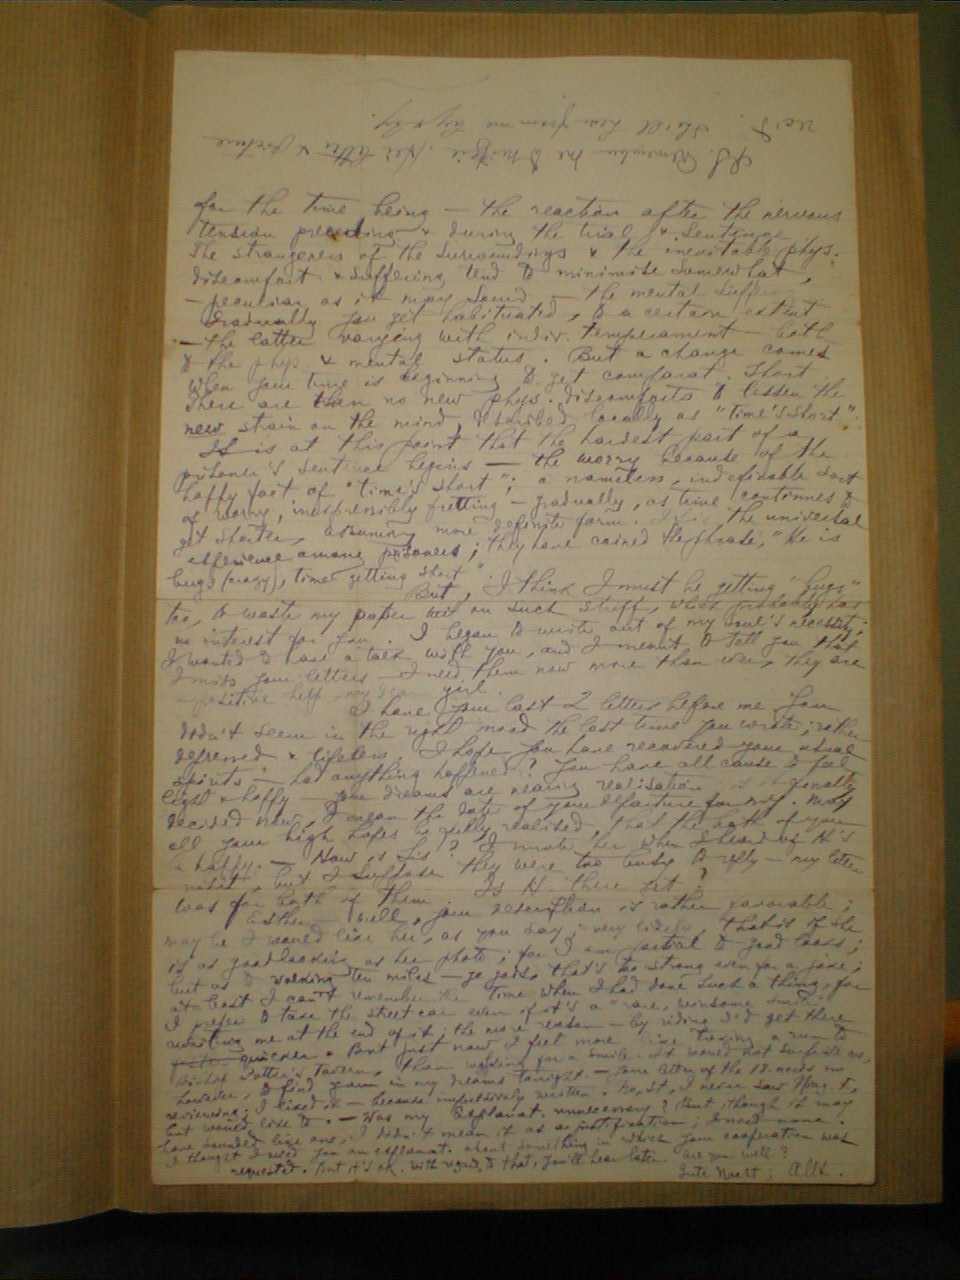 P.S. Remember me to Her letter & picture
rec'd. She'll hear from me by & by.
for the time being — the reaction after the nervous
tension preceding & during the trial & sentence
The strangeness of the surroundings & the inevitable phys.
discomfort & suffering tend to minimise somewhat,
— peculiar as it may sound — the mental suffering
Gradually you get habituated, to a certain extent
— the latter varying with indiv. temperament — both
to the phys. & mental status. But a change comes
when your time is beginning to get comparat. short.
There are then no new phys. discomforts to lessen the
new strain on the mind, described locally as "time's short".
It is at this point that the hardest part of a
prisoner's sentence begins — the worry because of the
happy fact of "time's short"; a nameless, indefinable sort
of worry, inexpressibly fretting — gradually, as time continues to
get shorter, assuming more definite form. It is the universal
experience among prisoners; they have coined the phrase, "He is
bugs (crazy), time getting short".
But, I think I must be getting "bugs"
too, to waste my paper on such stuff, which probably has
no interest for you. I began to write out of my soul's necessity;
I wanted to have a talk with you, and I meant to tell you that
I miss your letters — I need them now more than ever, they are
a positive help, my dear girl.
I have your last 2 letters before me. You
didn't seem in the right mood the last time you wrote; rather
depressed & lifeless. I hope you have recovered your usual
spirits — had anything happened? You have all cause to feel
light & happy — your dreams are nearing realisation is it finally
decided now, I mean the date of your departure for May
all your high hopes be fully realised, that the both of you
be happy. — How is Lis? I wrote her when I heard of H's
visit, but I suppose they were too busy to reply — my letter
was for both of them. Is H. there yet?
Esther — well, your description is rather favorable;
may be I would like her, as you say; very likely, that is if she
is as goodlooking as her photo; for I am partial to good looks;
but as to walking ten miles — ye gods, that's too strong even for a joke;
at least I can't remember the time when I had done such a thing, for
I prefer to take the street car even if it's a "rare, winsome smile"
awaiting me at the end of it; the more reason — by riding I'd get there
quicker. But just now I feel more like taking a run to
Bishop Potter's Tavern, than walking for a smile. It would not surprise me,
however, to find you in my dreams tonight. — Your letter of the 18. needs no
reviewing; I liked it — because impulsively written. No, St., I never saw Mag. I,
but would like to. — Was my Explanat. unnecessary? But, though it may
have sounded like one, I didn't mean it as a justification; I need none.
I thought I owed you an explanat. about something in which your cooperation was
requested. But it's ok. With regard to that, you'll hear later. Are you well?
Gute Nacht; Alex.